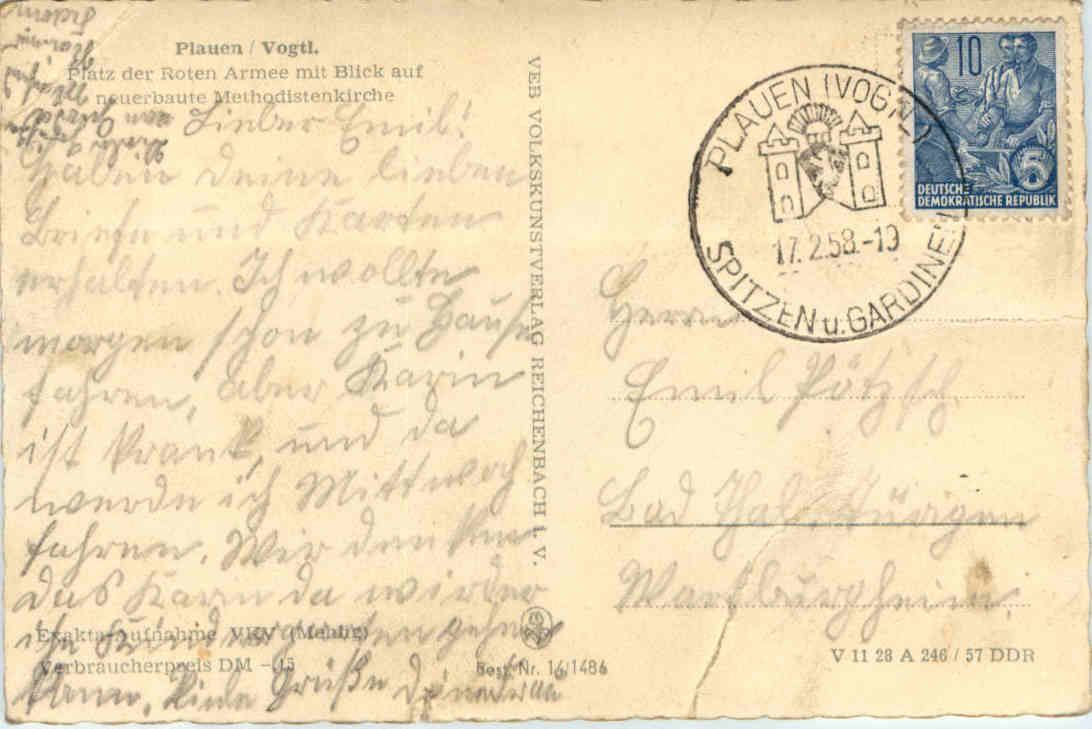 Plauen / Vogtl.
Platz der Roten Armee mit Blick auf
neuerbaute Methodistenkirche
Lieber Emil!
Haben deine lieben
Briefe und Karten
erhalten. Ich wollte
morgen schon zu Hause
fahren, aber Karin
ist krank, und da
werde ich Mittwoch
fahren. Wir denken
das Karin da wieder
gehen
kann. Viele Grüße
Exakta-Aufnahme VKV (Mehlig)
Verbraucherpreis DM -.15
Best.-Nr. 16/1486
VEB VOLKSKUNSTVERLAG REICHENBACH i. V.
PLAUEN (VOGTL)
17.2.58.-19
SPITZEN u. GARDINEN
10
5
DEUTSCHE
DEMOKRATISCHE REPUBLIK
Herrn
Emil Pötzsch
Bad Thüringen
Wartburgheim
V 11 28 A 246 / 57 DDR